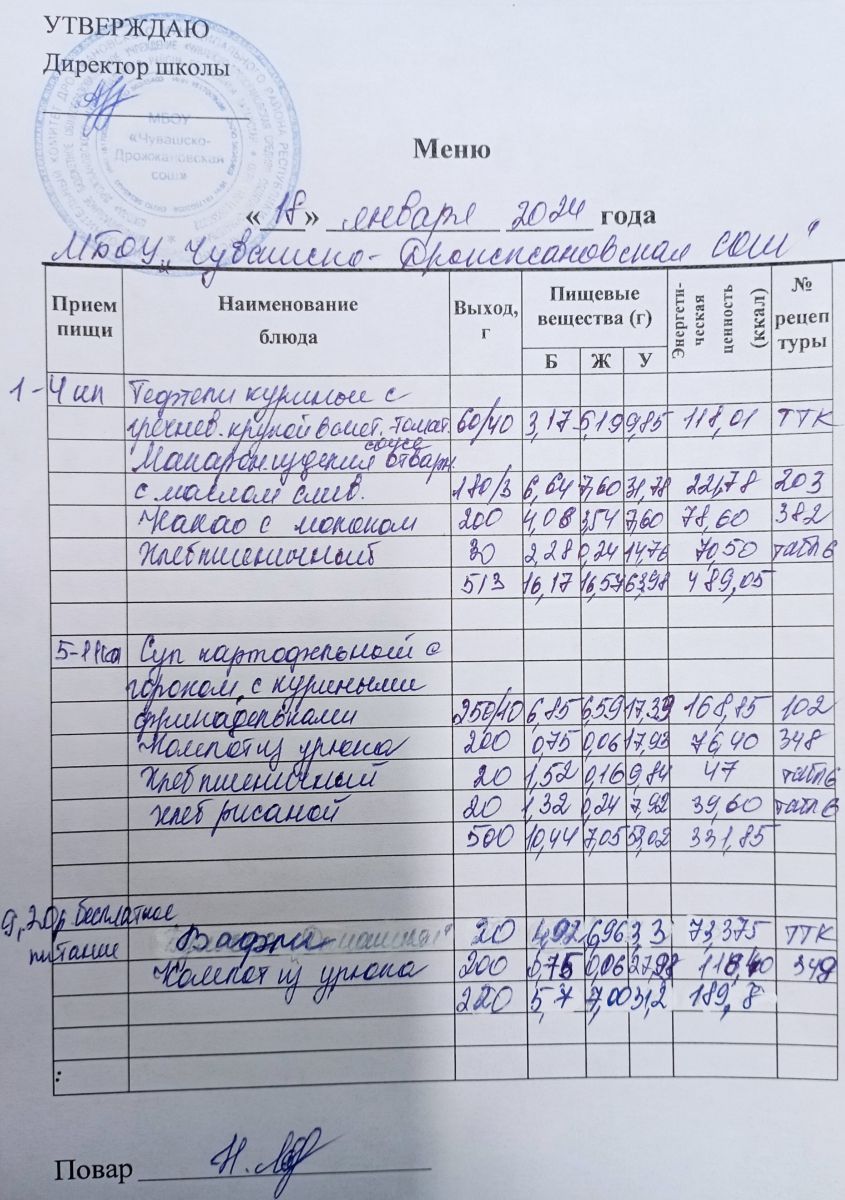 УТВЕРЖДАЮ
Директор школы
МБОУ
«Чувашско-
Дрожжановская
сош»
Меню
«18» января 2024 года
МБОУ „Чувашско-Дрожжановская СОШ"
Прием пищи Наименование блюда Выход, г Пищевые вещества (г) Б Ж У Энергети-ческая ценность (ккал) № рецеп туры
1-4 кл Тефтели куриные с
гречнев. крупой в смет. томат. 60/40 3,17 5,19 9,85 118,01 ТТК
соусе
Макарон изделия отварн.
с маслом слив. 180/3 6,64 7,60 31,78 221,78 203
Какао с молоком 200 4,08 3,54 7,60 78,60 382
Хлеб пшеничный 30 2,28 0,24 14,76 70,50 табл 6
513 16,17 16,57 63,98 489,05
5-11 кл Суп картофельный с
горохом, с куриными
фрикадельками 250/10 6,85 6,59 17,39 168,85 102
Компот из урюка 200 0,75 0,06 17,93 76,40 348
Хлеб пшеничный 20 1,52 0,16 9,84 47 табл 6
хлеб ржаной 20 1,32 0,24 7,92 39,60 табл 6
500 10,44 7,05 53,02 331,85
9,20р бесплатное
питание Вафли 20 4,92 6,96 3,3 73,375 ТТК
Компот из урюка 200 0,75 0,06 27,98 116,40 349
220 5,7 7,00 31,2 189,8
:
Повар